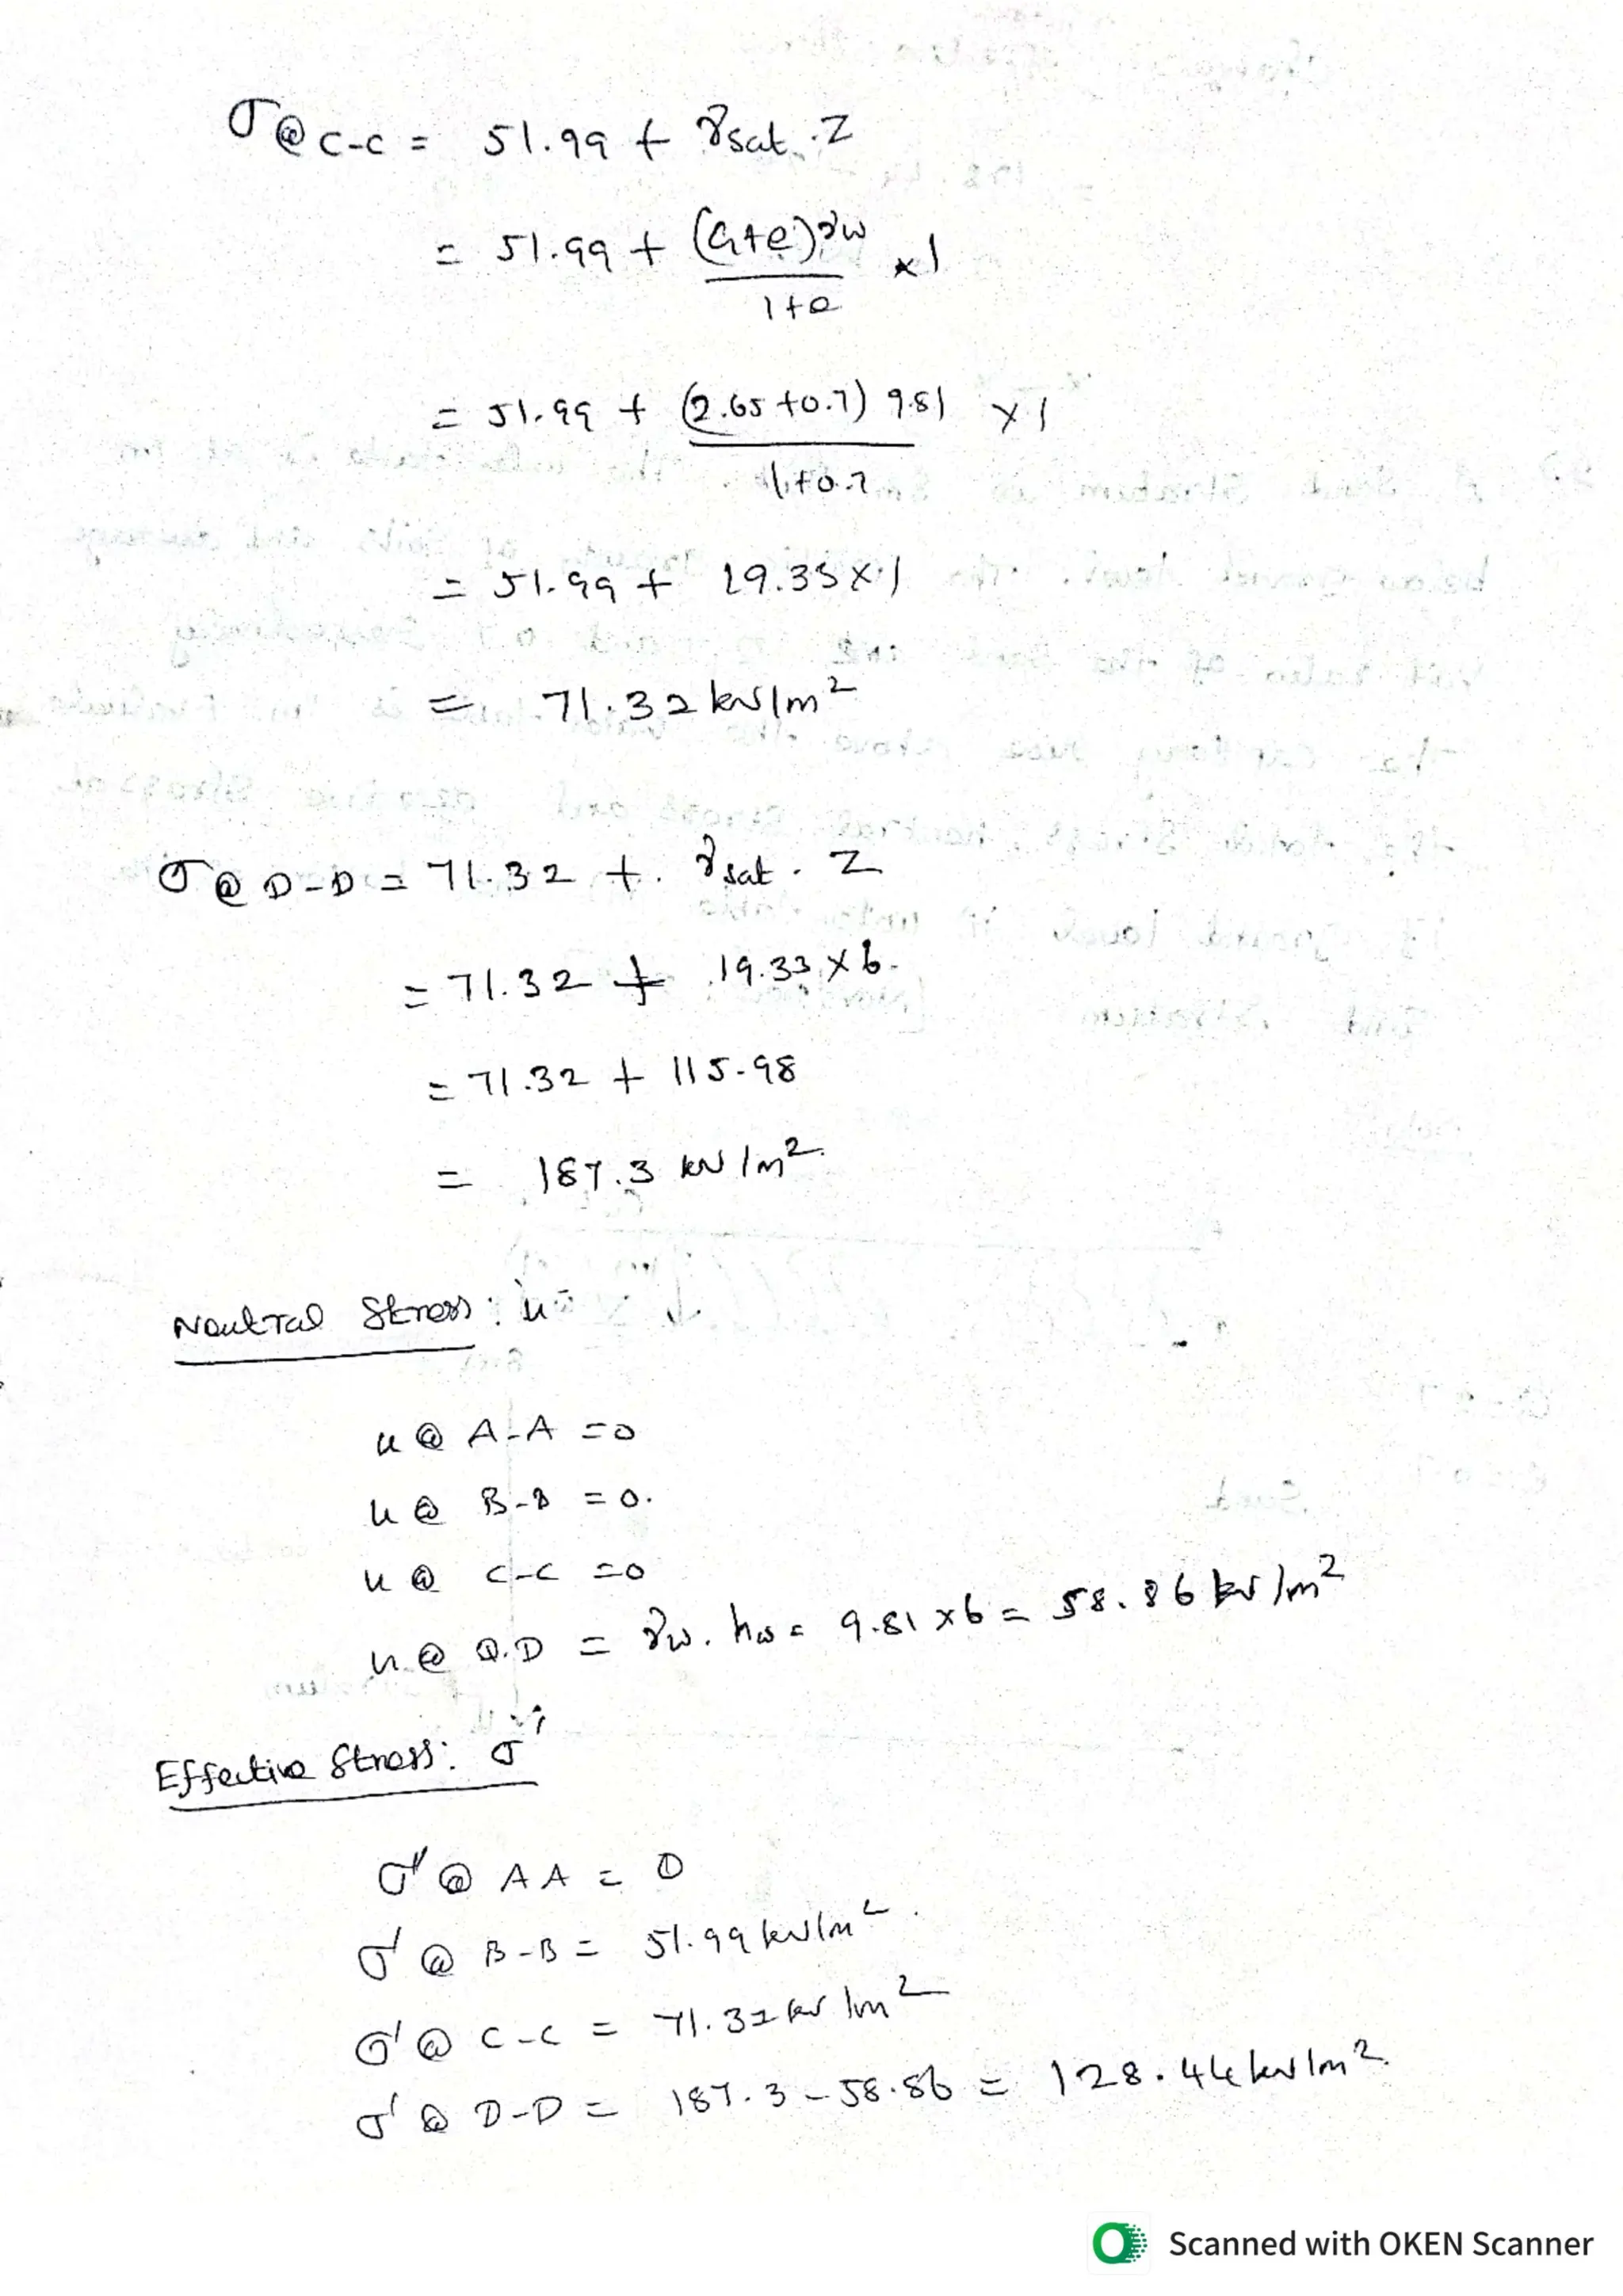 σ @ C-C = 51.99 + γsat . Z
= 51.99 + (G+e)γw / 1+e × 1
= 51.99 + (2.65+0.7) 9.81 / 1+0.7 × 1
= 51.99 + 19.33 × 1
= 71.32 kN/m²
σ @ D-D = 71.32 + γsat . Z
= 71.32 + 19.33 × 6
= 71.32 + 115.98
= 187.3 kN/m²
Neutral Stress : u
u @ A-A = 0
u @ B-B = 0.
u @ C-C = 0
u @ D.D = γw. hw = 9.81 × 6 = 58.86 kN/m²
Effective Stress : σ'
σ' @ AA = 0
σ' @ B-B = 51.99 kN/m².
σ' @ C-C = 71.32 kN/m²
σ' @ D-D = 187.3 - 58.86 = 128.44 kN/m².
Scanned with OKEN Scanner